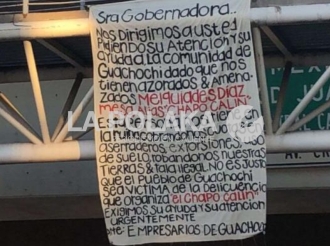 Sra Gobernadora..
Nos Dirigimos a usted
Pidiendo su Atención y su
ayuda a la comunidad de
Guachochi dado que nos
tienen azorados & Amena-
zados Melquiades Díaz
Meza Alias "Chapo Calín"
LA POLAKA
cobrandonos
aserraderos, extorsiones, uso
de suelo, robandonos nuestras
Tierras & tala ilegal. No es Justo
que el Pueblo de Guachochi
sea victima de la Delicuencia
que organiza el Chapo Calín"
Exigimos su Ayuda y su atención
URGENTEMENTE
Atte: EMPRESARIOS DE GUACHOCHI
JUÁ
AV.